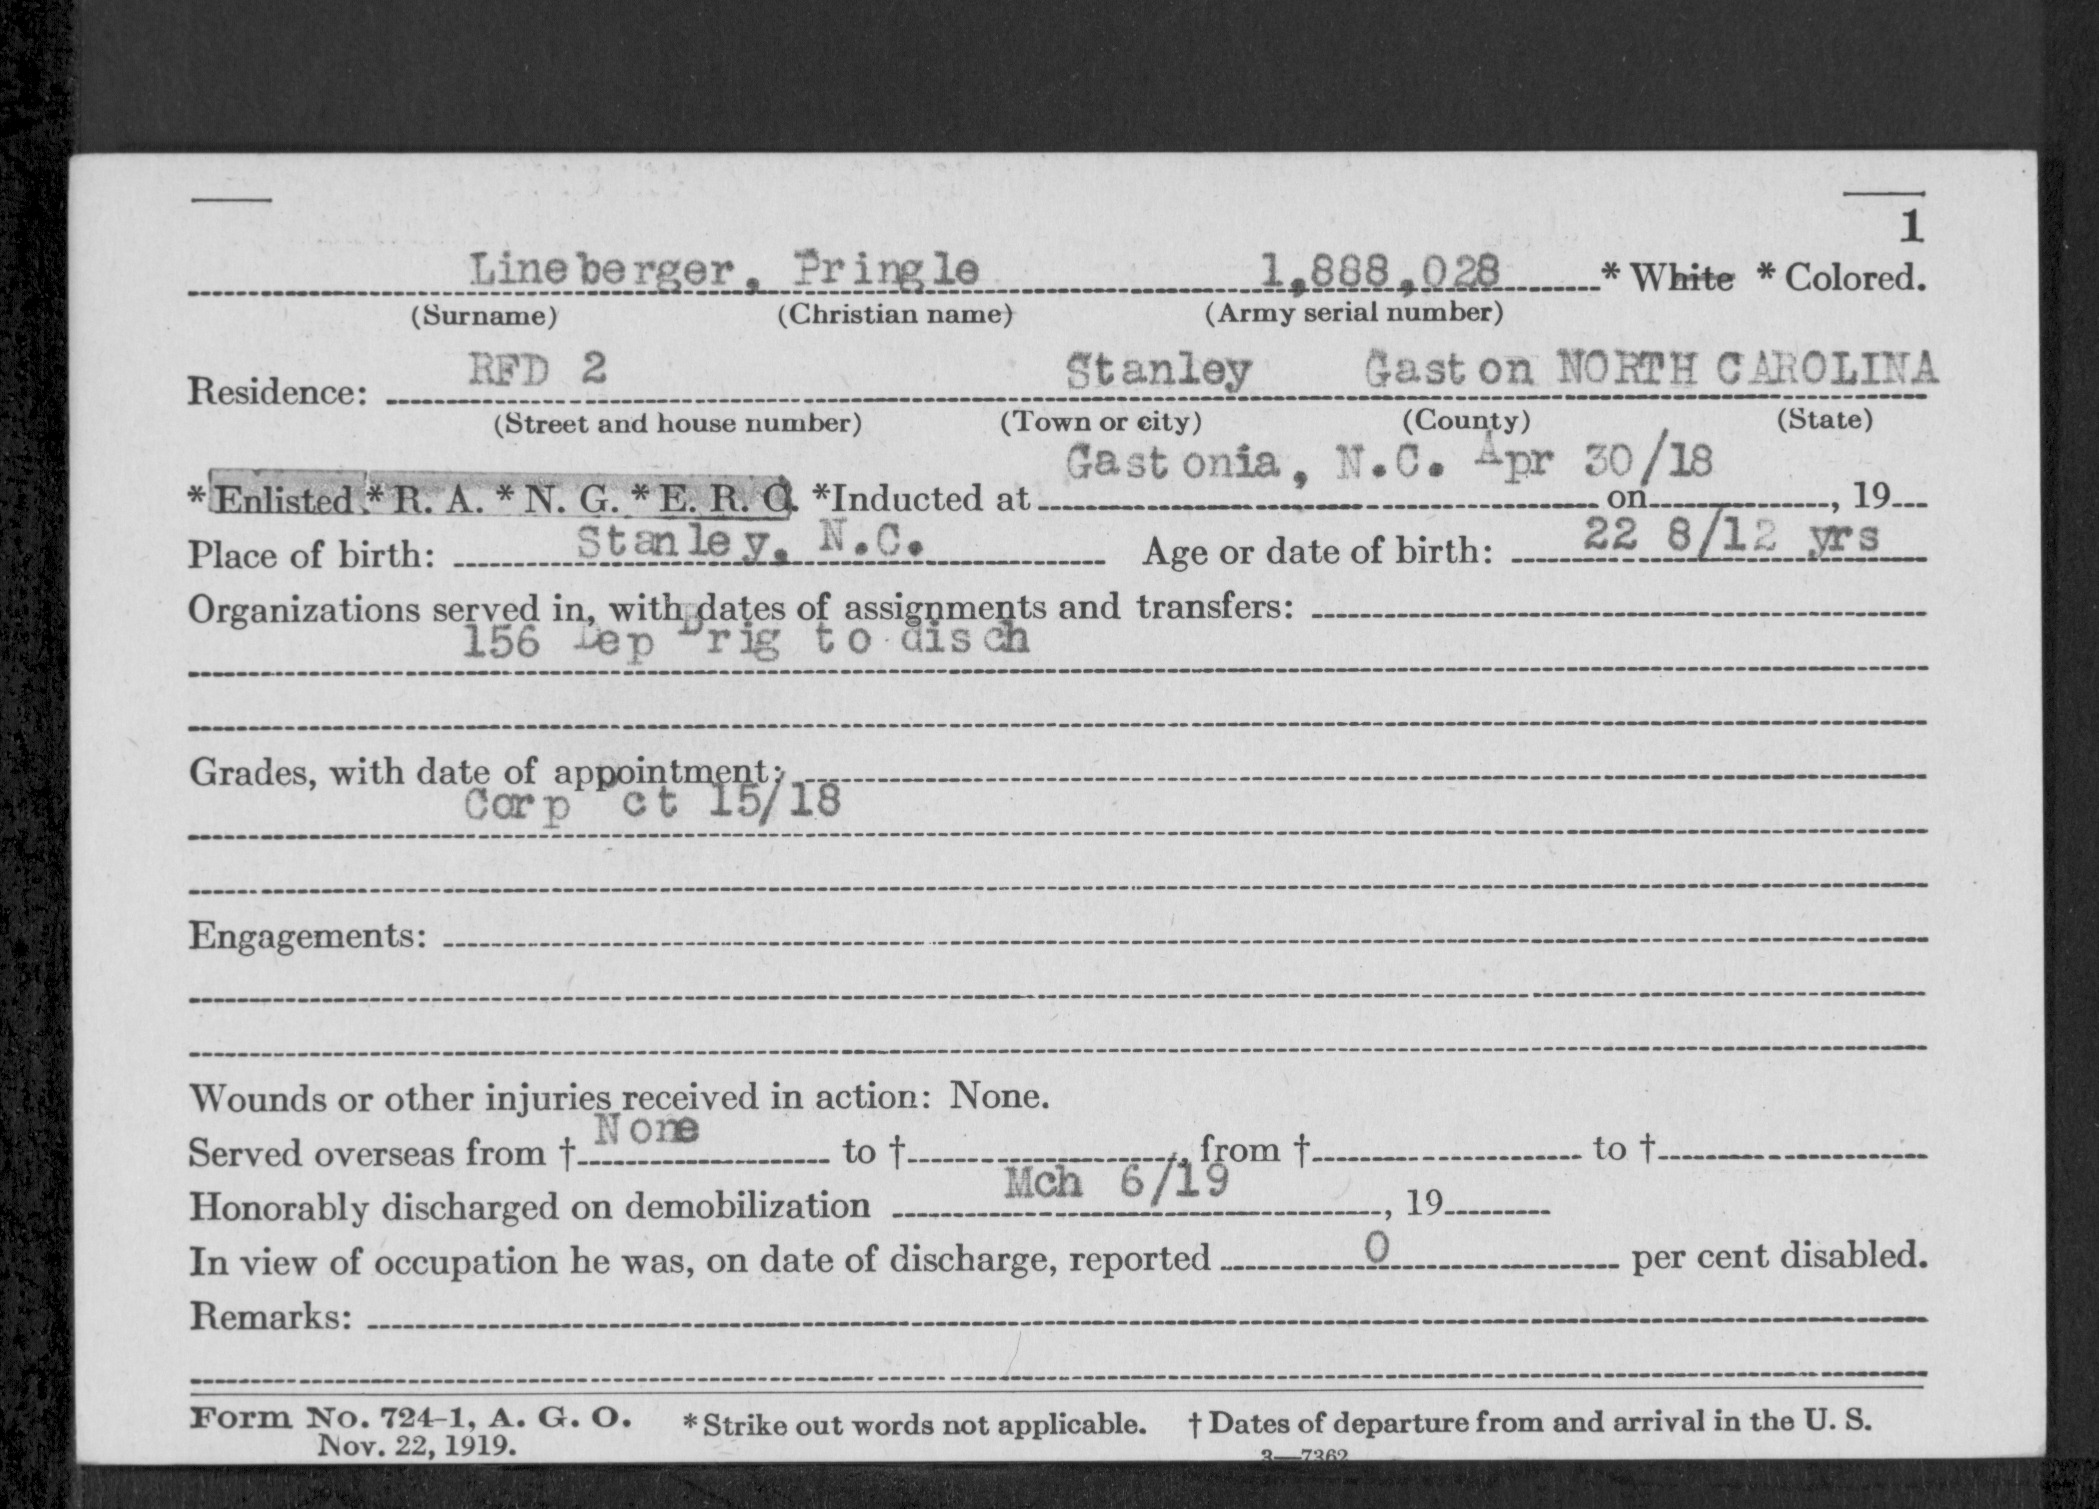 1
Lineberger, Pringle 1,888,028 * White * Colored.
(Surname) (Christian name) (Army serial number)
RFD 2 Stanley Gaston NORTH CAROLINA
Residence:
(Street and house number) (Town or city) (County) (State)
Gastonia, N.C. Apr 30/18
*Enlisted * R. A. * N. G. * E. R. C. *Inducted at on , 19
Place of birth: Stanley, N.C. Age or date of birth: 22 8/12 yrs
Organizations served in, with dates of assignments and transfers:
156 Dep Brig to disch
Grades, with date of appointment:
Corp ct 15/18
Engagements:
Wounds or other injuries received in action: None.
None
Served overseas from † to † , from † to †
Mch 6/19
Honorably discharged on demobilization , 19
In view of occupation he was, on date of discharge, reported 0 per cent disabled.
Remarks:
Form No. 724-1, A. G. O. * Strike out words not applicable. † Dates of departure from and arrival in the U. S.
Nov. 22, 1919.
3—7362